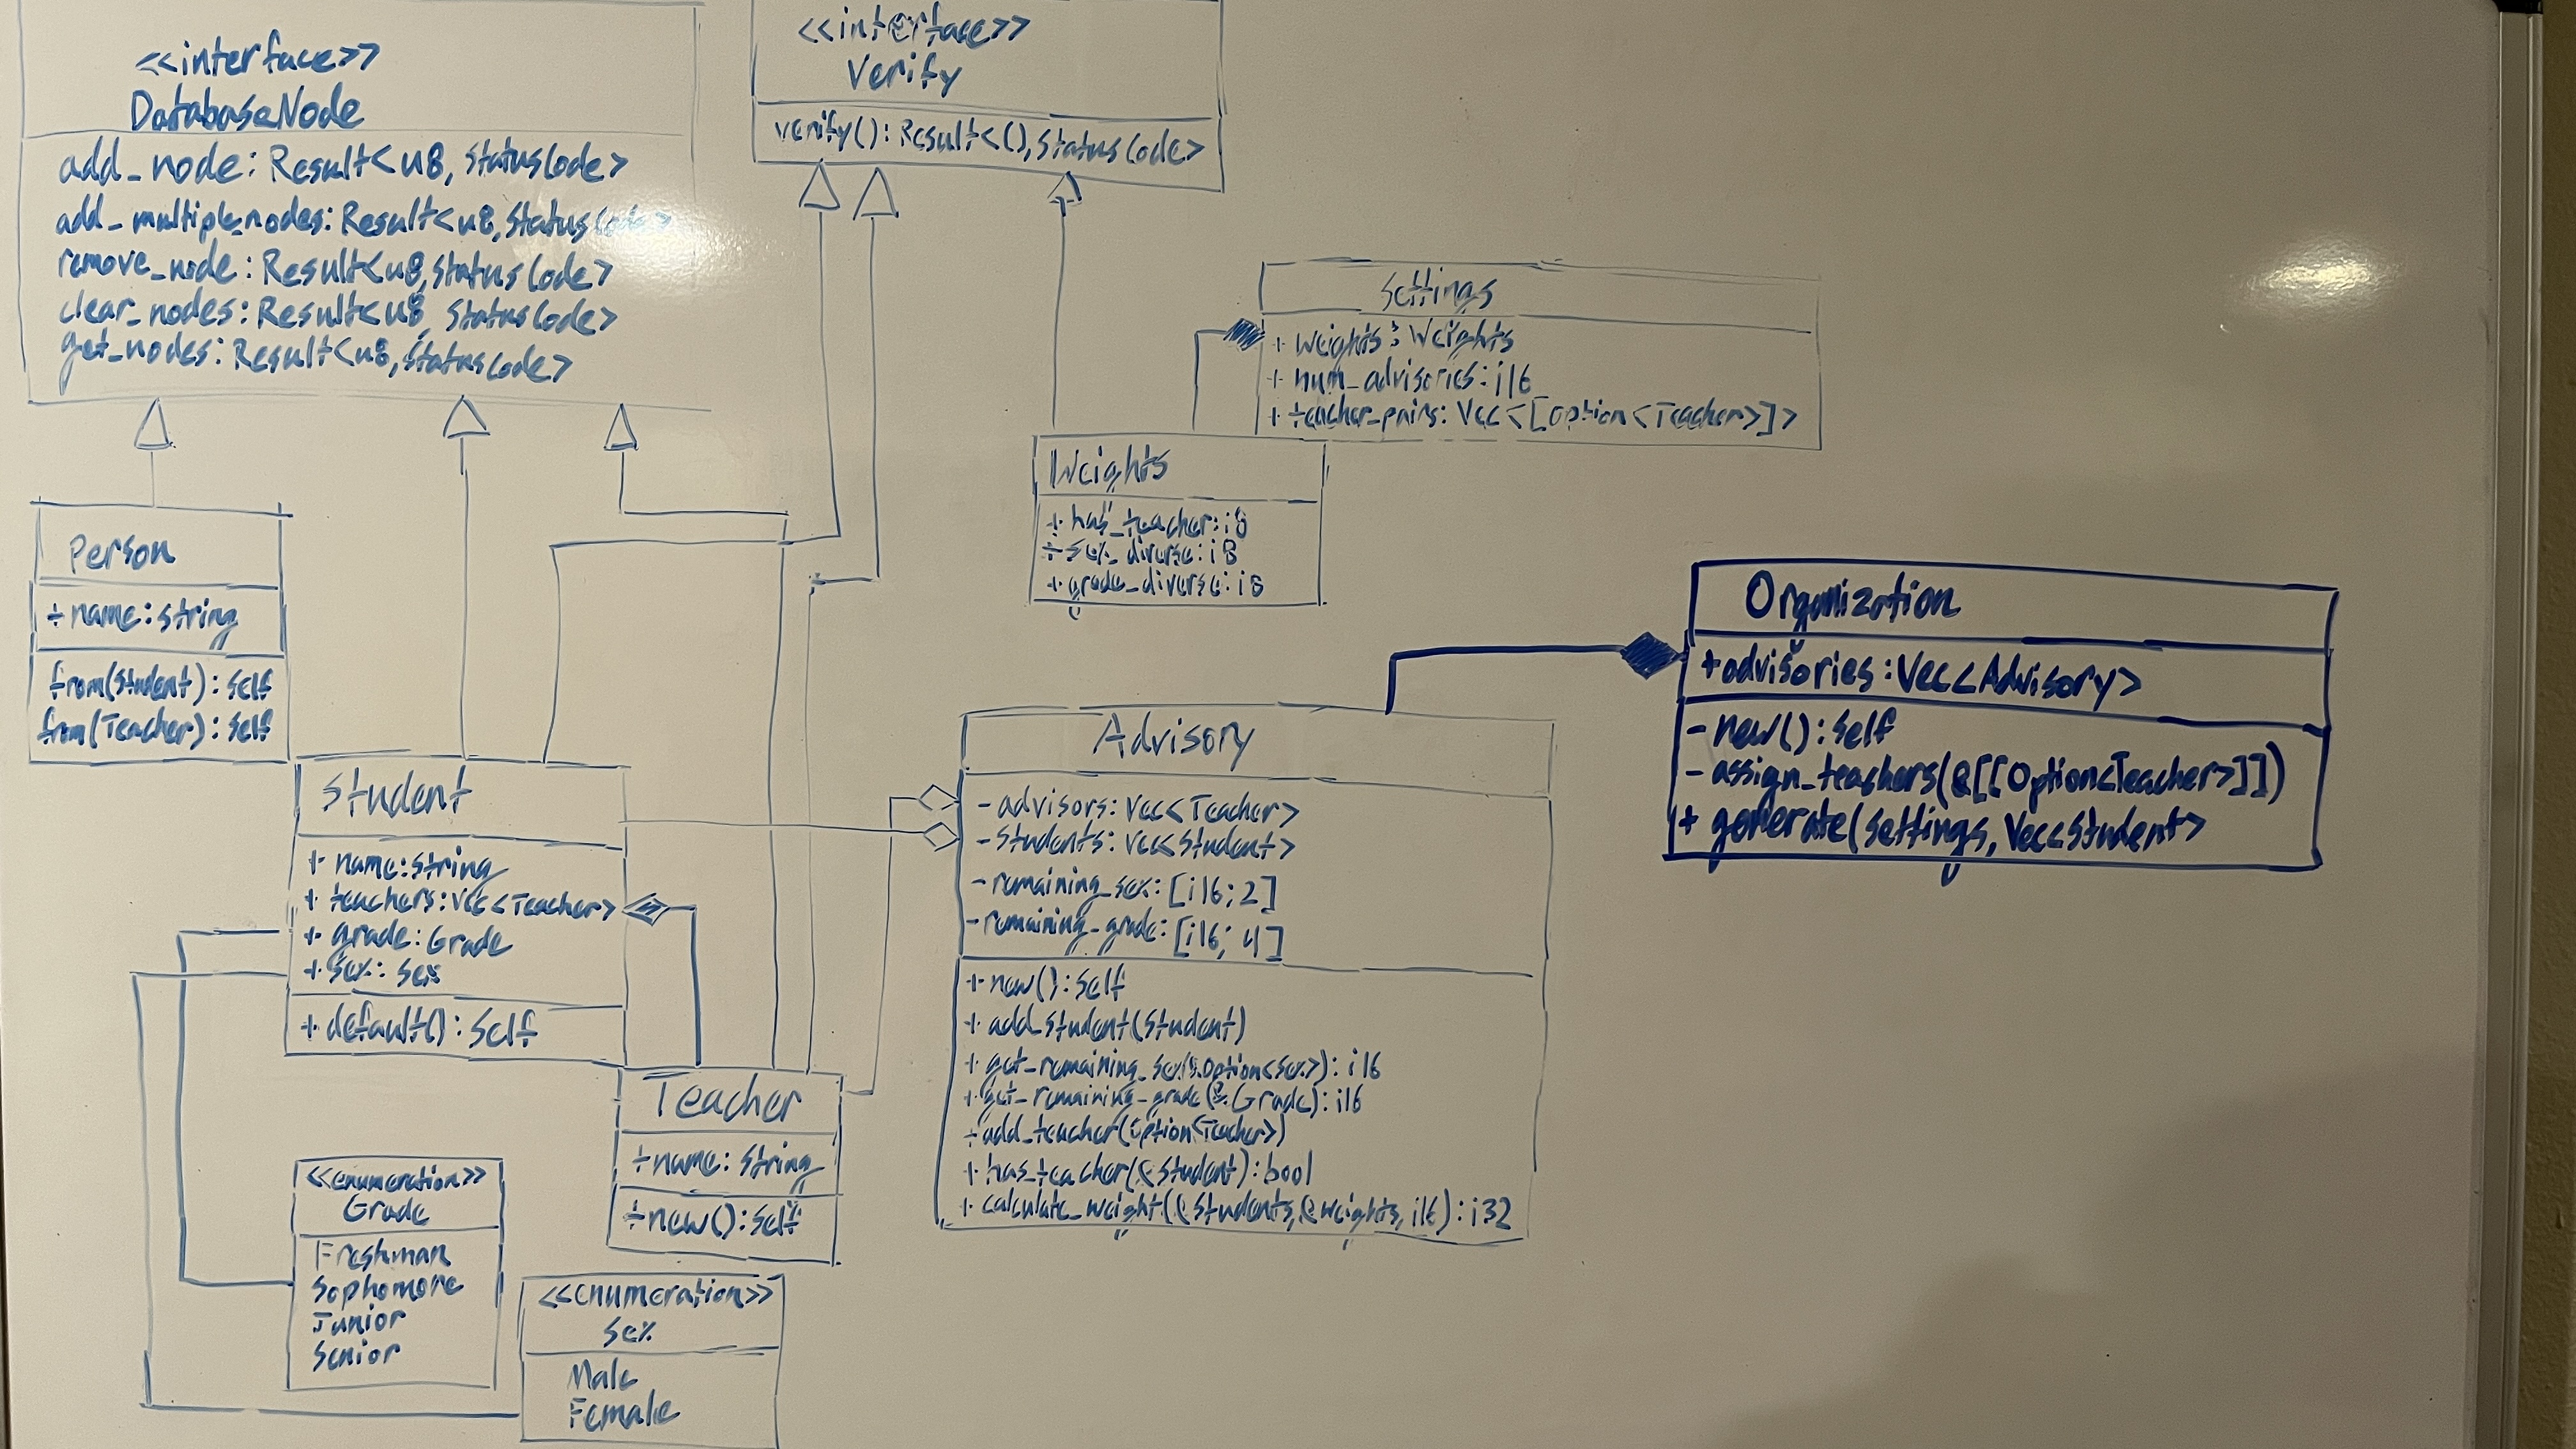 <<interface>>
DatabaseNode
add_node: Result<u8, StatusCode>
add_multiple_nodes: Result<u8, StatusCode>
remove_node: Result<u8, StatusCode>
clear_nodes: Result<u8, StatusCode>
get_nodes: Result<u8, StatusCode>
<<interface>>
Verify
verify(): Result<(), StatusCode>
Settings
+ weights: Weights
+ num_advisories: i16
+ teacher_pairs: Vec<[Option<Teacher>]>
Weights
+ has_teacher: i8
+ sex_diverse: i8
+ grade_diverse: i8
Person
+ name: String
from(Student): Self
from(Teacher): Self
Organization
+ advisories: Vec<Advisory>
- new(): Self
- assign_teachers(&[[Option<Teacher>]])
+ generate(settings, Vec<Student>
Advisory
- advisors: Vec<Teacher>
- students: Vec<Student>
- remaining_sex: [i16; 2]
- remaining_grade: [i16; 4]
+ new(): Self
+ add_student(Student)
+ get_remaining_sex(&Option<Sex>): i16
+ get_remaining_grade(&Grade): i16
+ add_teacher(Option<Teacher>)
+ has_teacher(&Student): bool
+ calculate_weight(&Students, &Weights, i16): i32
Student
+ name: String
+ teachers: Vec<Teacher>
+ grade: Grade
+ sex: Sex
+ default(): Self
Teacher
+ name: String
+ new(): Self
<<enumeration>>
Grade
Freshman
Sophomore
Junior
Senior
<<enumeration>>
Sex
Male
Female